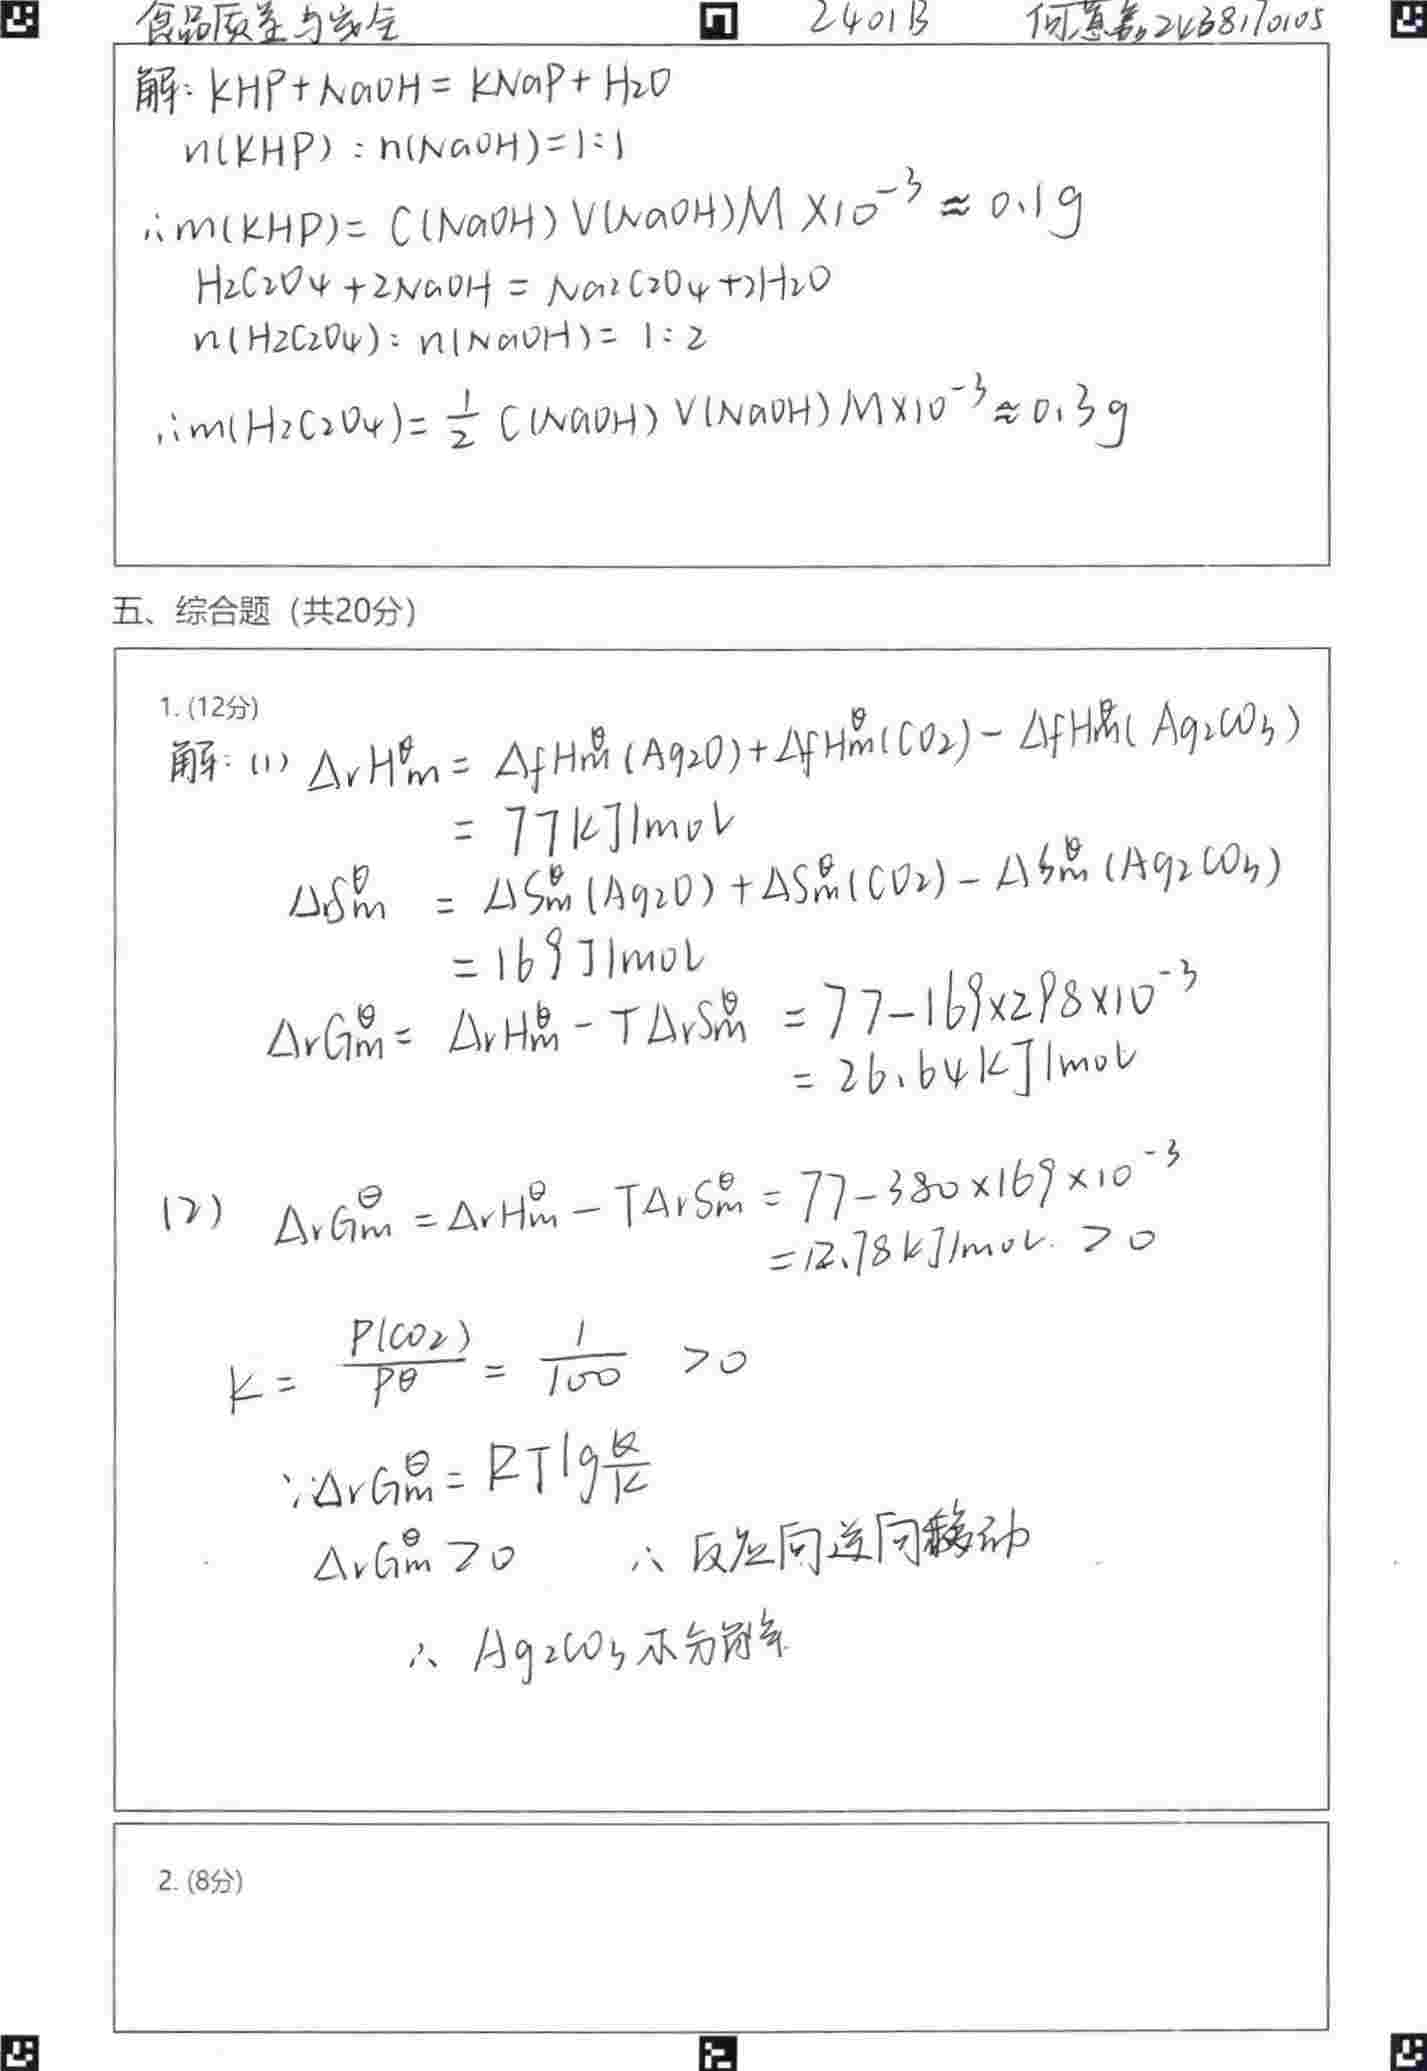 食品质量与安全 2401B 何慧 2438170105
解: KHP+NaOH=KNaP+H2O
n(KHP):n(NaOH)=1:1
∴m(KHP)= C(NaOH)V(NaOH)M×10⁻³≈0.1g
H2C2O4+2NaOH=Na2C2O4+2H2O
n(H2C2O4):n(NaOH)=1:2
∴m(H2C2O4)=1/2 C(NaOH)V(NaOH)M×10⁻³≈0.3g
五、综合题（共20分）
1. (12分)
解:(1) ΔrHm^θ=ΔfHm^θ(Ag2O)+ΔfHm^θ(CO2)-ΔfHm^θ(Ag2CO3)
=77kJ/mol
ΔrSm^θ=ΔSm^θ(Ag2O)+ΔSm^θ(CO2)-ΔSm^θ(Ag2CO3)
=169J/mol
ΔrGm^θ=ΔrHm^θ-TΔrSm^θ=77-169×298×10⁻³
=26.64kJ/mol
(2) ΔrGm^θ=ΔrHm^θ-TΔrSm^θ=77-380×169×10⁻³
=12.78kJ/mol.>0
K=P(CO2)/Pθ=1/100 >0
∵ΔrGm^θ=RTlg Q/K
ΔrGm^θ>0 ∴反应向逆向移动
∴Ag2CO3不分解
2. (8分)